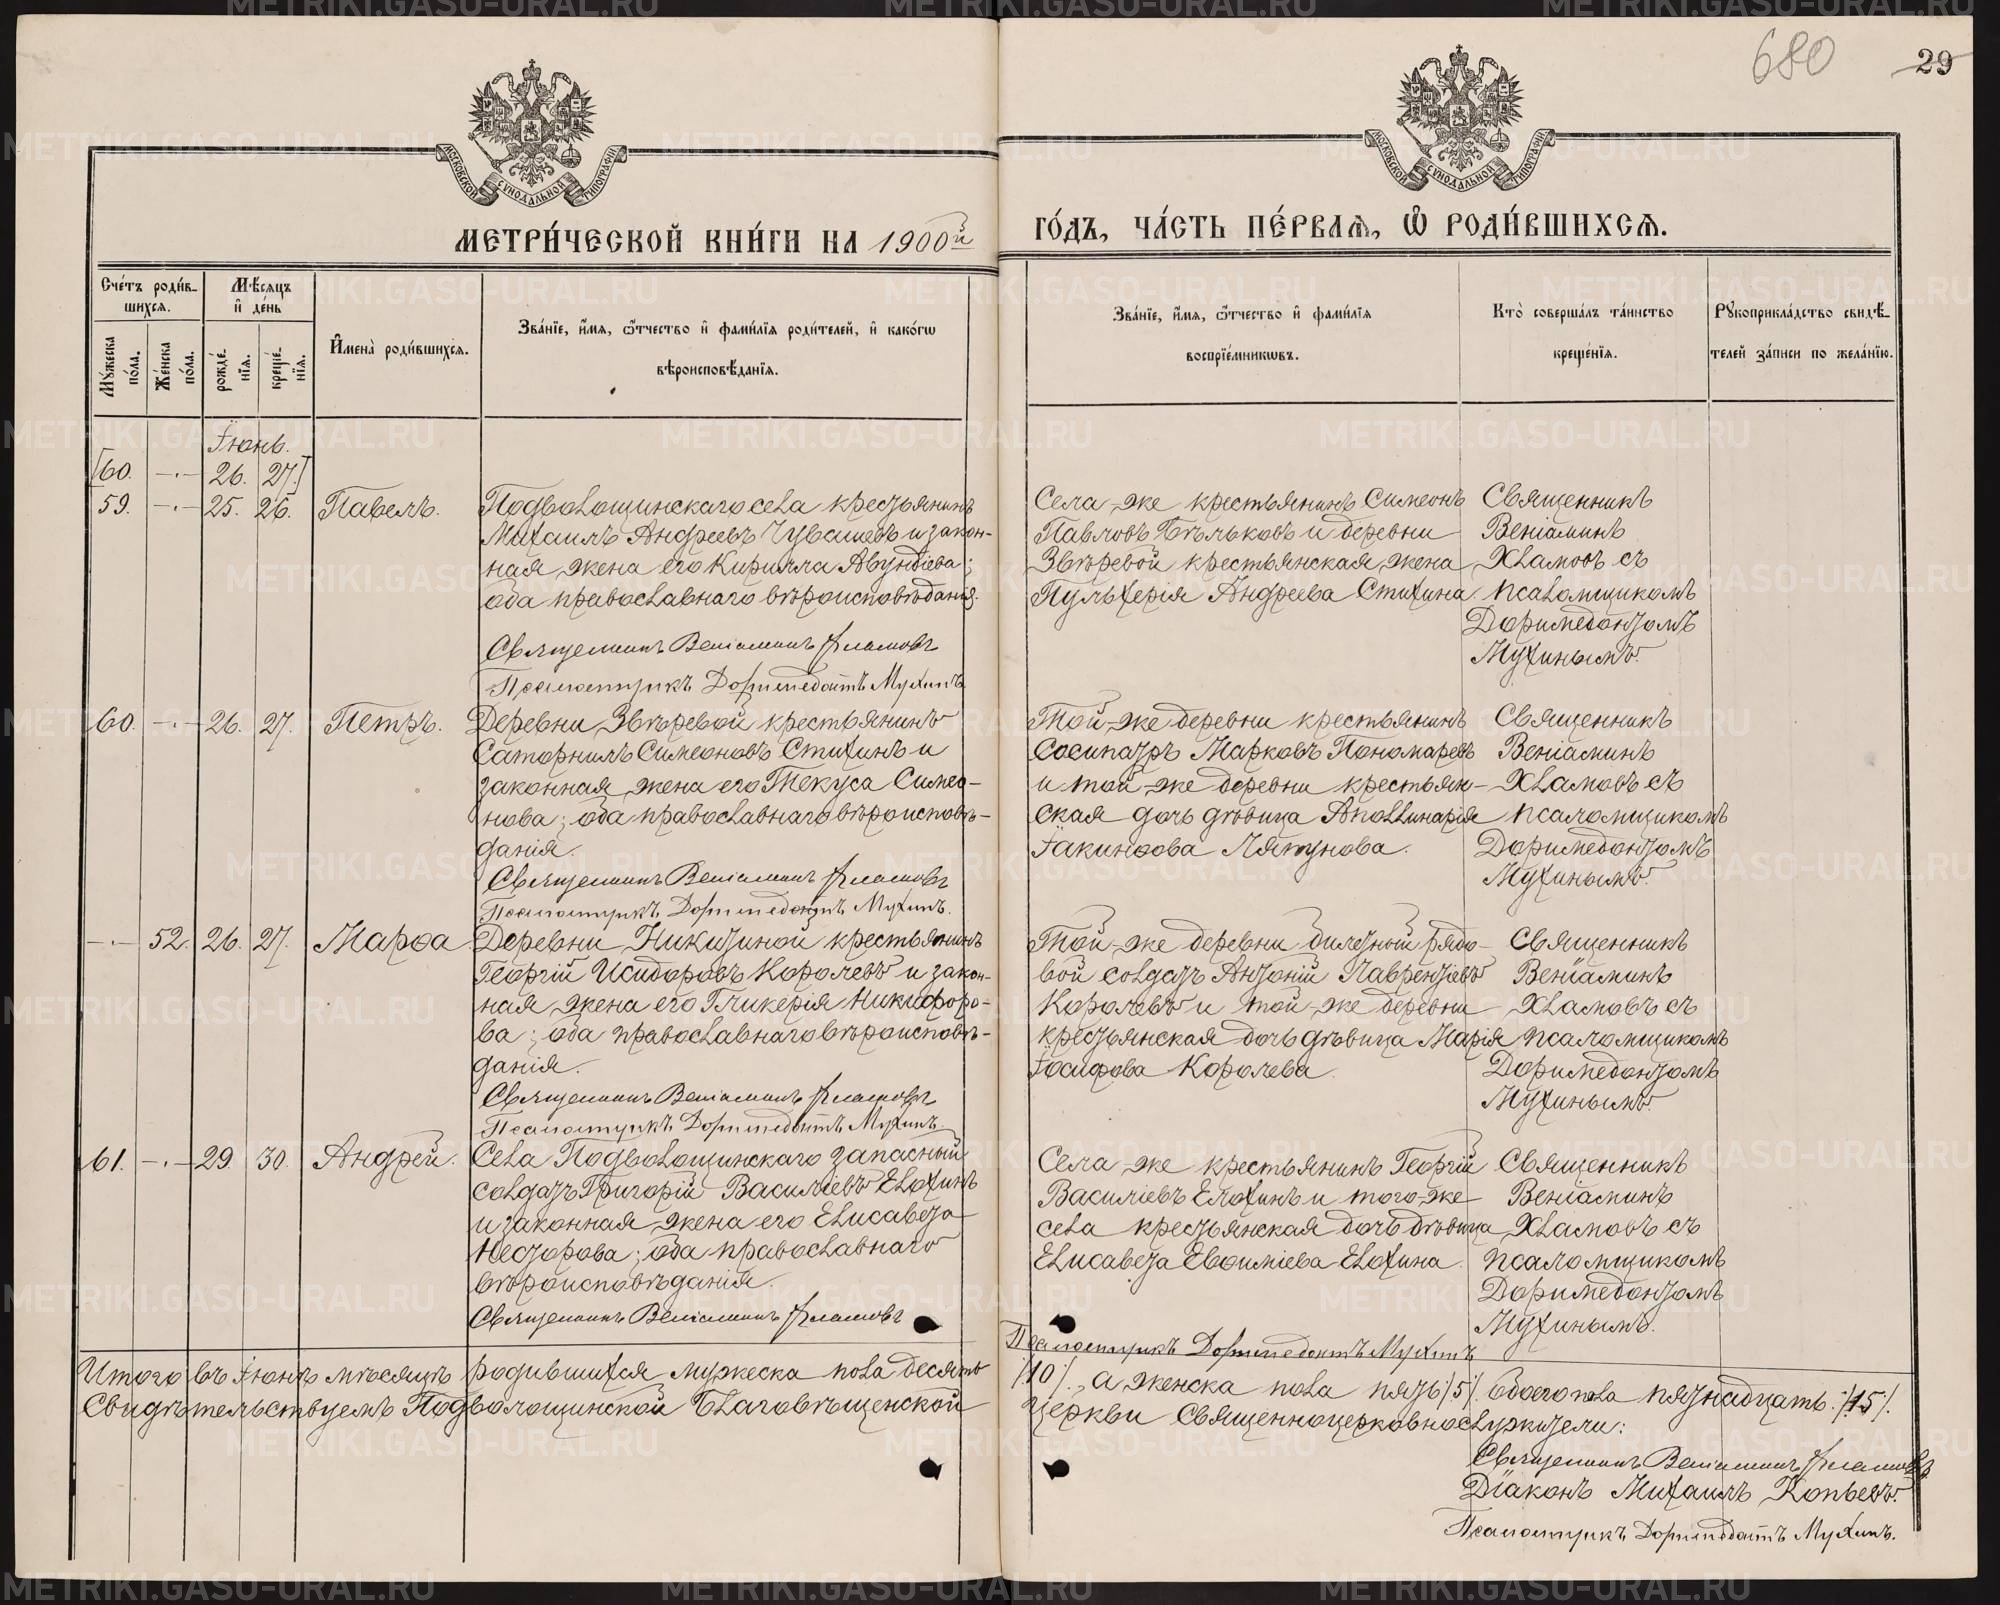 680
29
МОСКОВСКОЙ СѴНОДАЛЬНОЙ ТИПОГРАФІИ
МОСКОВСКОЙ СѴНОДАЛЬНОЙ ТИПОГРАФІИ
МЕТРИ́ЧЕСКОЙ КНИ́ГИ НА 1900й
ГО́ДЪ, ЧА́СТЬ ПЕ́РВАѦ, Ѽ РОДИ́ВШИХСѦ.
Сче́тъ роди́в-
шихсѧ.
Мѣ́сѧцъ
и҆ де́нь
Мꙋ́жеска по́ла.
Же́нска по́ла.
рожде́нїѧ.
креще́нїѧ.
И҆мена̀ роди́вшихсѧ.
Зва́нїе, и҆́мѧ, ѻ҆́тчество и҆ фами́лїѧ роди́телей, и҆ како́гѡ
вѣроисповѣ́данїѧ.
Зва́нїе, и҆́мѧ, ѻ҆́тчество и҆ фами́лїѧ
воспрїе́мникѡвъ.
Кто̀ соверша́лъ та́инство
креще́нїѧ.
Рꙋкоприкла́дство свидѣ́-
телей за́писи по жела́нїю.
Іюнь.
[60. -·- 26. 27.]
59. -·- 25. 26. Павелъ.
Подволощинскаго села крестьянинъ
Михаилъ Андреевъ Чувашевъ и закон-
ная жена его Кирилла Авундіева;
оба православнаго вѣроисповѣданія.
Священникъ Веніаминъ Хламовъ
Псаломщикъ Доримедонтъ Мухинъ
Села-же крестьянинъ Симеонъ
Павловъ Бѣльковъ и деревни
Звѣревой крестьянская жена
Пульхерія Андреева Стихина.
Священникъ
Веніаминъ
Хламовъ съ
псаломщикомъ
Доримедонтомъ
Мухинымъ.
60. -·- 26. 27. Петръ.
Деревни Звѣревой крестьянинъ
Саторнилъ Симеоновъ Стихинъ и
законная жена его Текуса Симео-
нова; оба православнаго вѣроисповѣ-
данія.
Священникъ Веніаминъ Хламовъ
Псаломщикъ Доримедонтъ Мухинъ.
Той-же деревни крестьянинъ
Сосипатръ Марковъ Пономаревъ
и той-же деревни крестьян-
ская дочь дѣвица Аполлинарія
Іакинѳова Ляпунова.
Священникъ
Веніаминъ
Хламовъ съ
псаломщикомъ
Доримедонтомъ
Мухинымъ.
-·- 52. 26. 27. Марѳа
Деревни Никитиной крестьянинъ
Георгій Исидоровъ Королевъ и закон-
ная жена его Гликерія Никифоро-
ва; оба православнаго вѣроисповѣ-
данія.
Священникъ Веніаминъ Хламовъ
Псаломщикъ Доримедонтъ Мухинъ
Той-же деревни билетный рядо-
вой солдатъ Антоній Лаврентіевъ
Королевъ и той-же деревни
крестьянская дочь дѣвица Марія
Іосифова Королева.
Священникъ
Веніаминъ
Хламовъ съ
псаломщикомъ
Доримедонтомъ
Мухинымъ.
61. -·- 29. 30. Андрей.
Села Подволощинскаго запасный
солдатъ Григорій Василіевъ Елохинъ
и законная жена его Елисавета
Несторова; оба православнаго
вѣроисповѣданія.
Священникъ Веніаминъ Хламовъ
Псаломщикъ Доримедонтъ Мухинъ
Села-же крестьянинъ Георгій
Василіевъ Елохинъ и того-же
села крестьянская дочь дѣвица
Елисавета Евѳиміева Елохина.
Священникъ
Веніаминъ
Хламовъ съ
псаломщикомъ
Доримедонтомъ
Мухинымъ.
Итого въ Іюнѣ мѣсяцѣ родившихся мужеска пола десять /10/., а женска пола пять /5/. Обоего пола пятнадцать. /15/.
Свидѣтельствуемъ Подволощинской Благовѣщенской церкви священноцерковнослужители:
Священникъ Веніаминъ Хламовъ
Діаконъ Михаилъ Копьевъ.
Псаломщикъ Доримедонтъ Мухинъ.